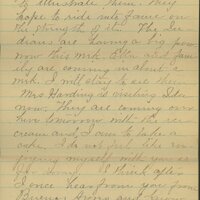 to illustrate them. They
hope to ride into fame on
the strength of it. The In-
dians are having a big pow
wow this week. Etta and fami
ly are coming in about a
week. I will stay to see them.
Mrs Harding is visiting Ida
now. They are coming over
here tomorrow with the ice
cream and I am to bake a
cake. I do not feel like en
joying myself with you so
far away. I think after
I once hear from you from
Buenos